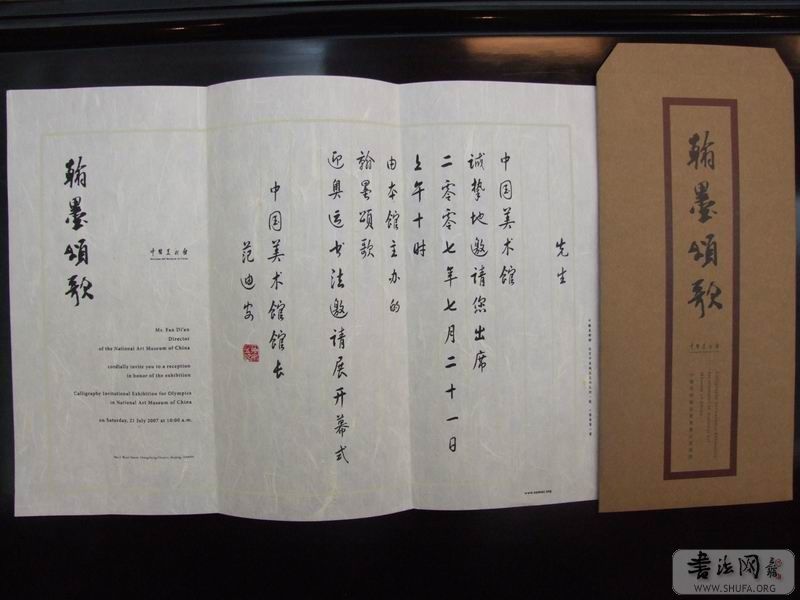 先生
中国美术馆
诚挚地邀请您出席
二零零七年七月二十一日
上午十时
由本馆主办的
翰墨頌歌
迎奥运书法邀请展开幕式
中国美术馆馆长
范迪安
翰墨頌歌
中国美术馆
Mr. Fan Di'an
Director
of the National Art Museum of China
cordially invite you to a reception
in honor of the exhibition
Calligraphy Invitational Exhibition for Olympics
in National Art Museum of China
on Saturday, 21 July 2007 at 10:00 a.m.
www.namoc.org
翰墨頌歌
中国美术馆
书法网
WWW.SHUFA.ORG